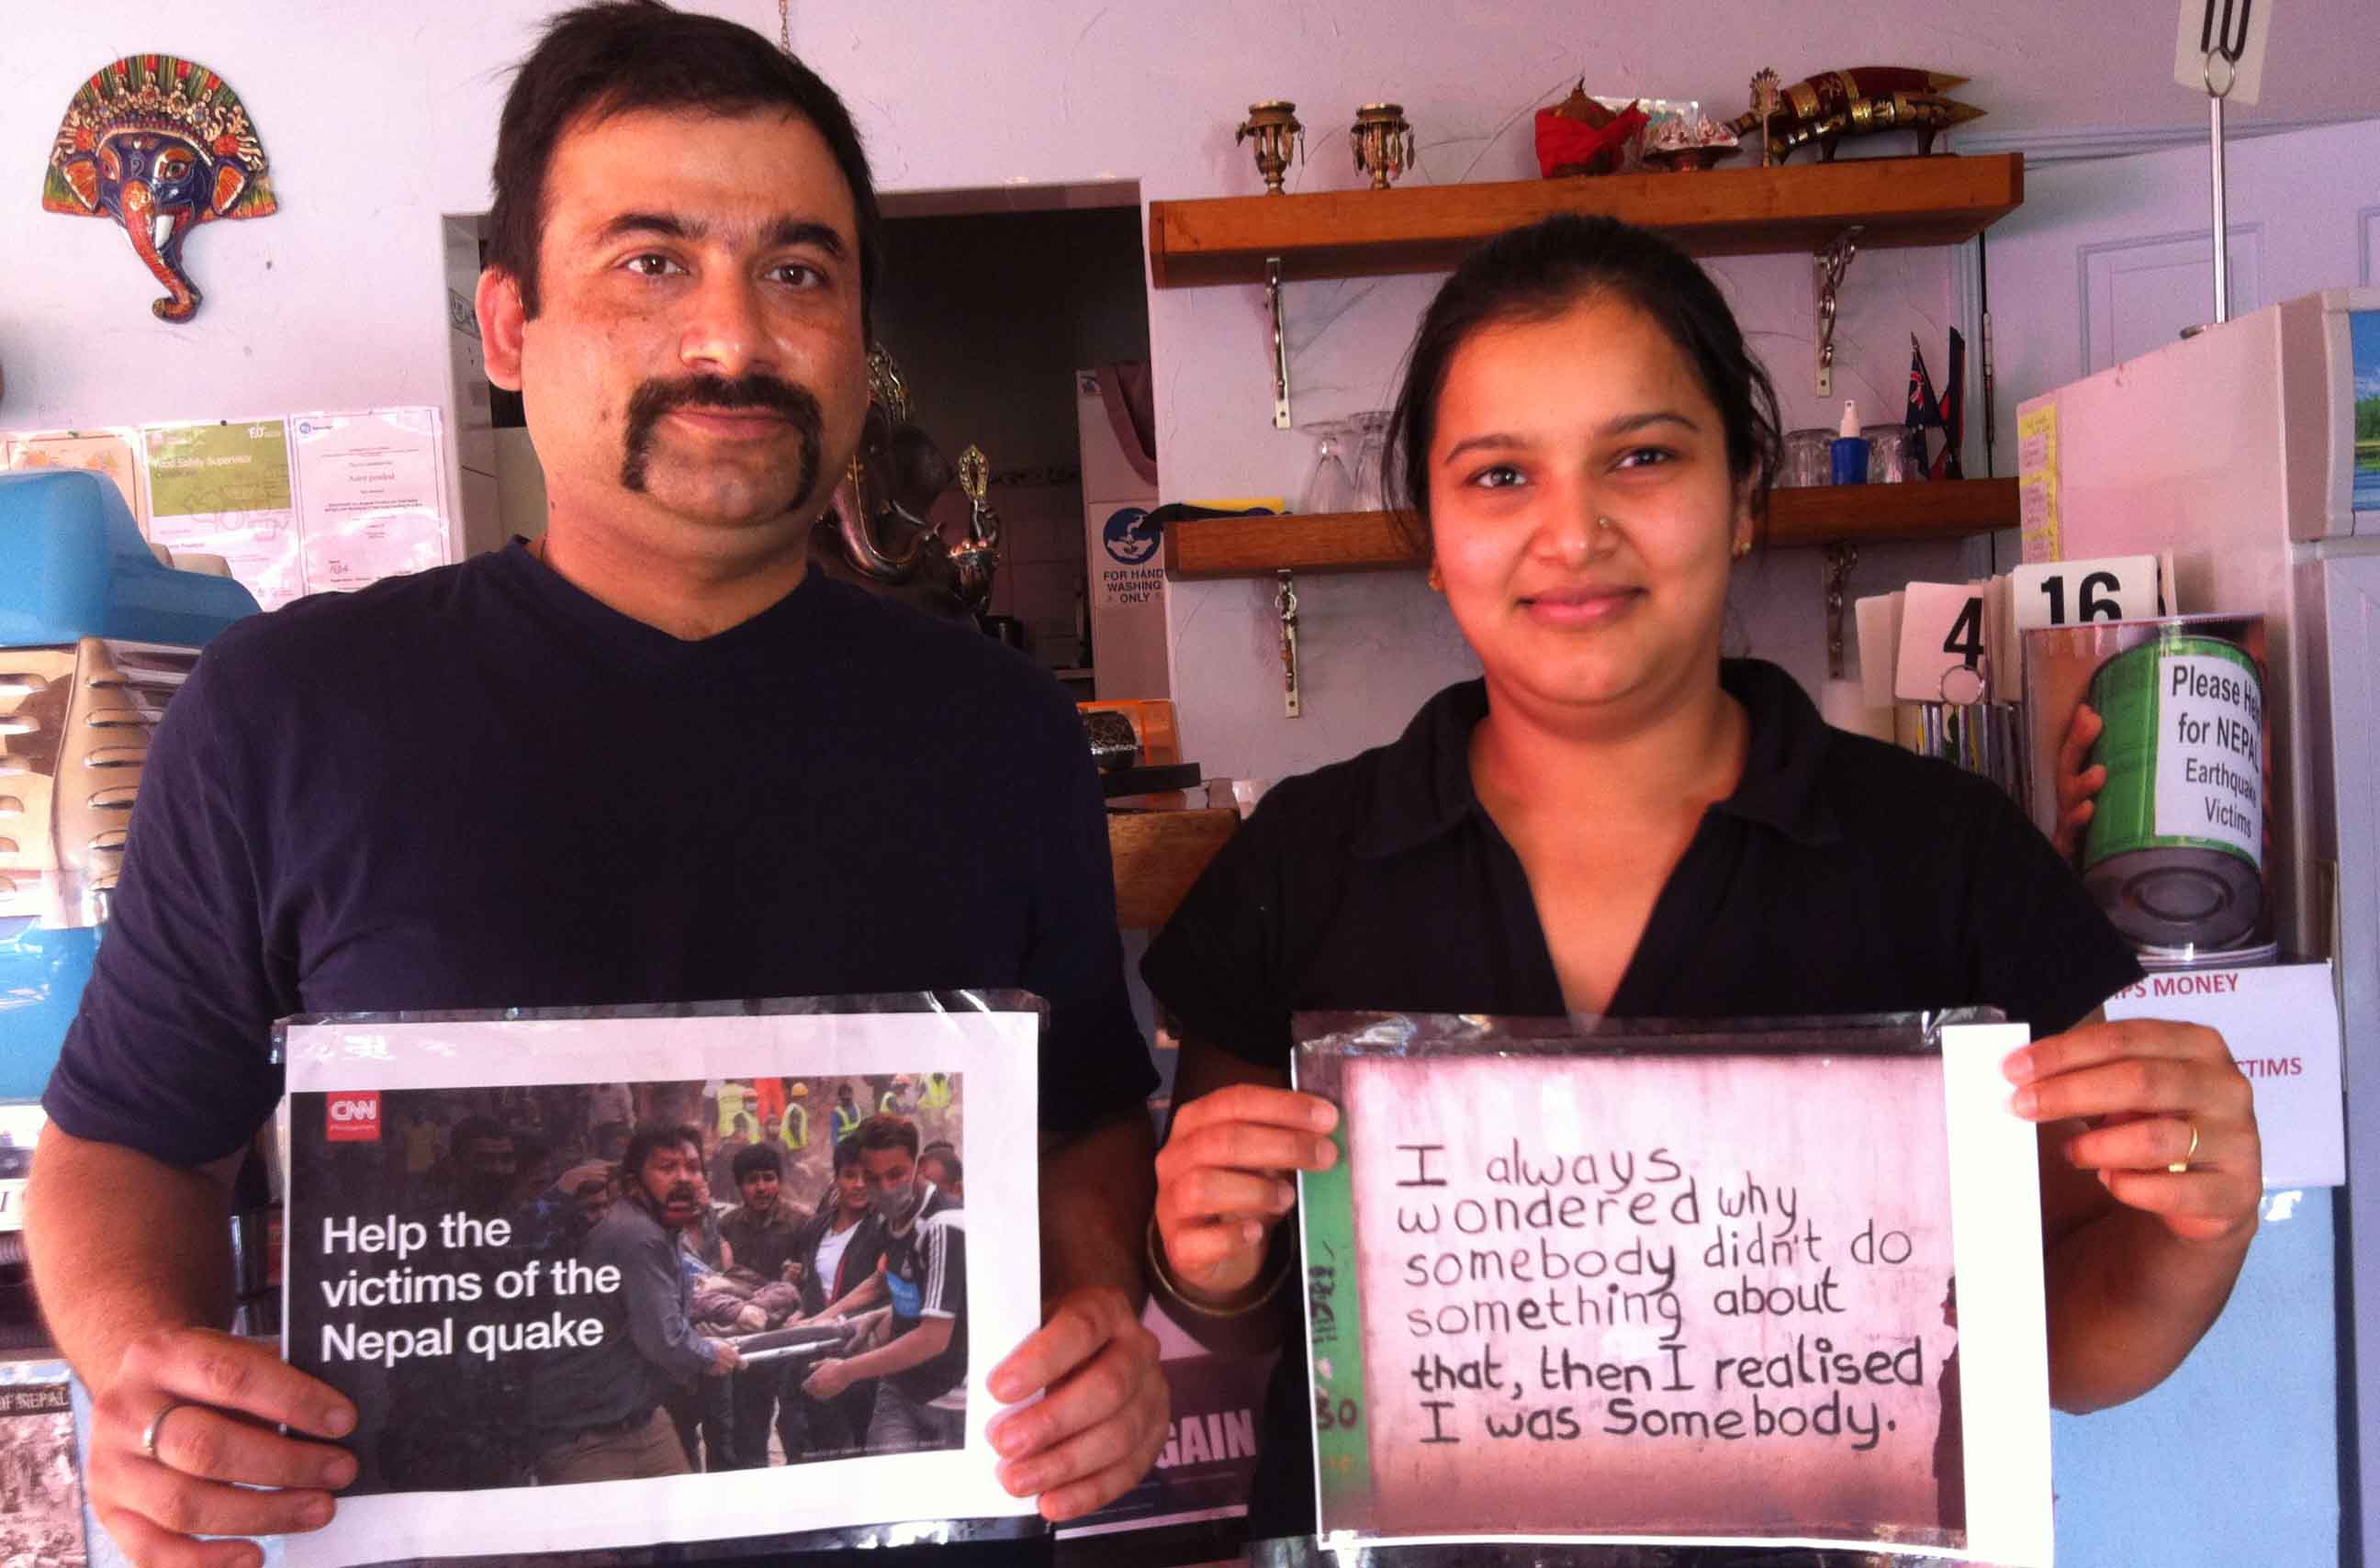 10
Food Safety Supervisor
FOR HAND
WASHING
ONLY
4
16
Please Help
for NEPAL
Earthquake
Victims
TIPS MONEY
VICTIMS
CNN
Help the
victims of the
Nepal quake
I always
wondered why
somebody didn't do
something about
that, then I realised
I was Somebody.
30
OF NEPAL
GAIN